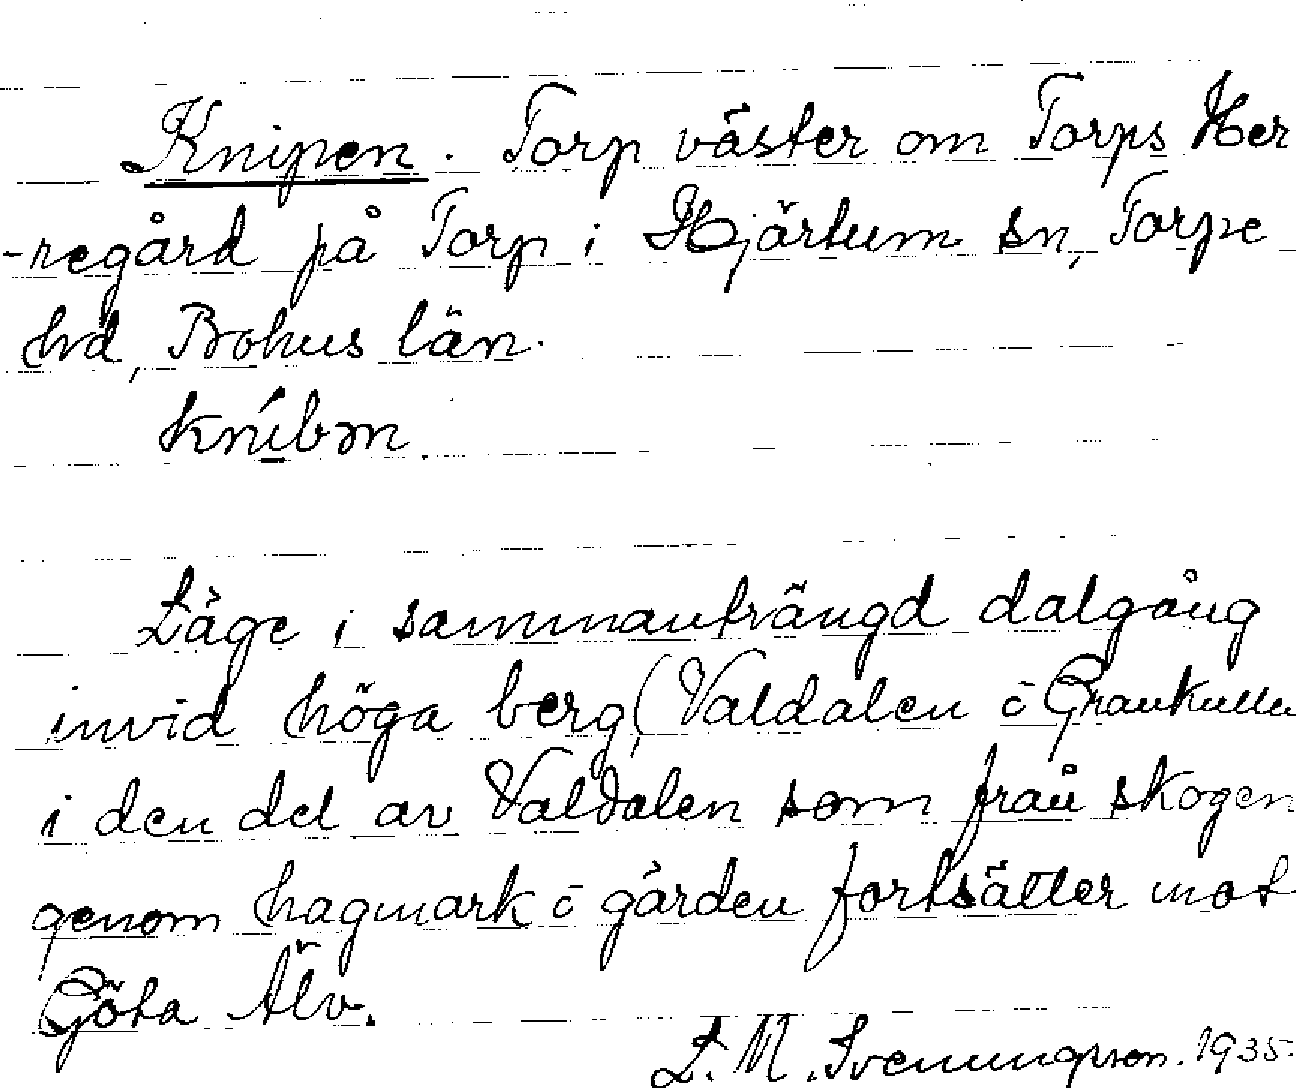 Knipen. Torp väster om Torps Her
-regård på Torp i Hjärtum sn, Torpe
hd, Bohus län.
kníbən.
Läge i sammanträngd dalgång
invid höga berg (Valdalen o Grankullen
i den del av Valdalen som från skogen
genom hagmark o gärden fortsätter mot
Göta Älv.
L. M. Svenungsson. 1935.